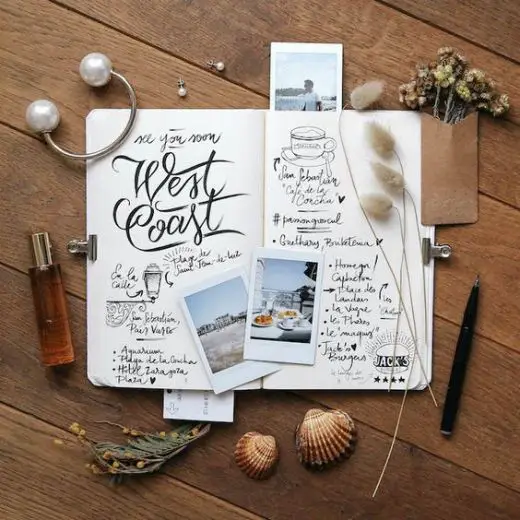 see you soon
West
Coast
Plage de
Saint-Jean-de-Luz
En la
calle
San Sebastián,
País Vasco
• Aquarium
• Playa de la Concha
• Hôtel Zaragoza
Plaza ♥
San Sebastián
"Café de la
Concha" ♥
#
• Guethary,
• Homegin /
Capbreton
Place des
Landais
• la Vague
• le Phare
• le "maquis"
• Jack's
Burgers
JACK'S
★★★★